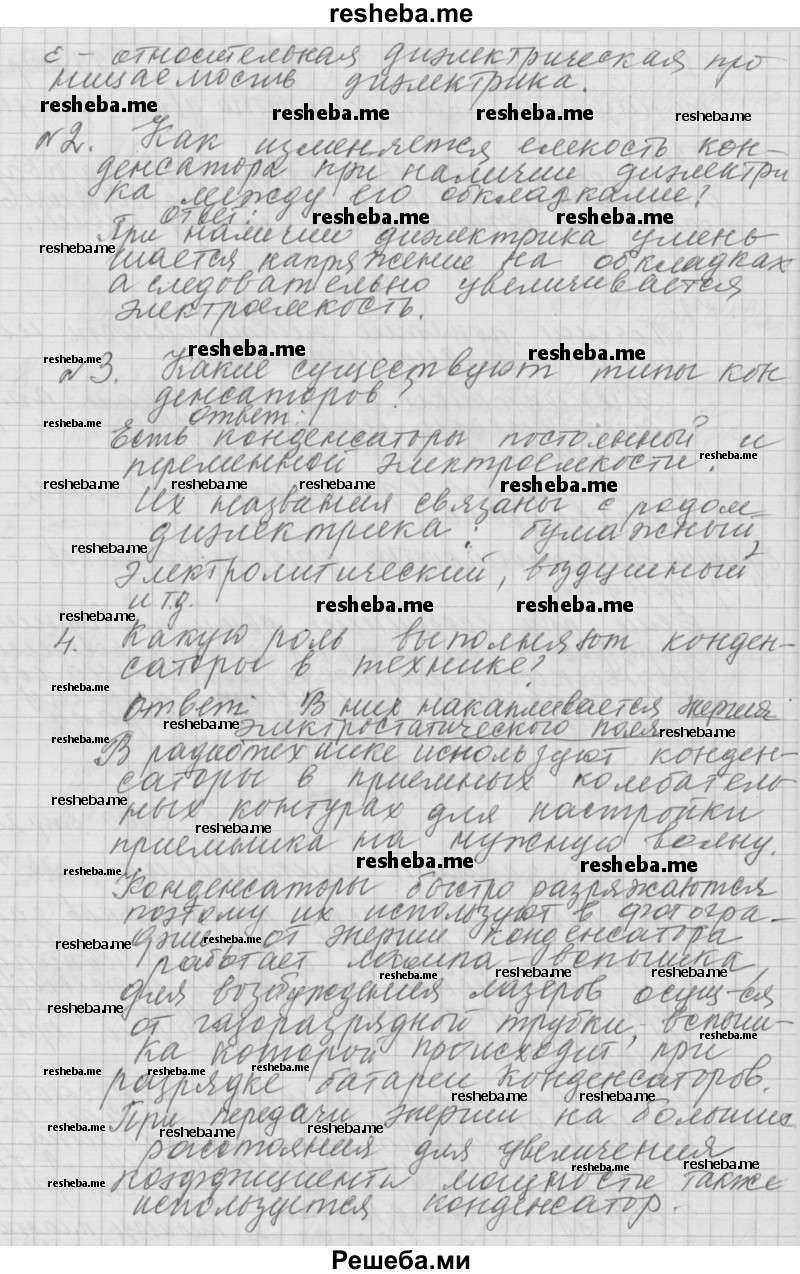 resheba.me
ε - относительная диэлектрическая про
ницаемость диэлектрика.
resheba.me resheba.me resheba.me resheba.me
№2. Как изменяется емкость кон-
денсатора при наличии диэлектри
ка между его обкладками?
Ответ:
resheba.me resheba.me
При наличии диэлектрика умень
resheba.me
шается напряжение на обкладках
а следовательно увеличивается
электроемкость.
resheba.me resheba.me resheba.me
№3. Какие существуют типы кон
денсаторов?
ответ:
resheba.me
Есть конденсаторы постоянной и
resheba.me
переменной электроемкости.
resheba.me resheba.me resheba.me resheba.me
Их названия связаны с родом
диэлектрика: бумажный,
resheba.me
электролитический, воздушный
и т.д.
resheba.me resheba.me resheba.me
4. Какую роль выполняют конден-
саторы в технике?
resheba.me
ответ: В них накапливается энергия
электростатического поля
resheba.me resheba.me resheba.me
В радиотехнике используют конден-
саторы в приемных колебатель
resheba.me
ных контурах для настройки
resheba.me
приемника на нужную волну.
resheba.me resheba.me resheba.me
Конденсаторы быстро разряжаются
поэтому их используют в фотогра-
фии, от энергии конденсатора
resheba.me resheba.me
работает лампа-вспышка,
resheba.me resheba.me resheba.me
для возбуждения лазеров осущ-ся
resheba.me
от газоразрядной трубки, вспыш-
resheba.me
ка которой происходит при
resheba.me resheba.me resheba.me
разрядке батареи конденсаторов.
resheba.me resheba.me
При передачи энергии на большие
resheba.me resheba.me resheba.me
расстояния для увеличения
resheba.me resheba.me
коэффициента мощности также
resheba.me
используется конденсатор.
Решеба.ми